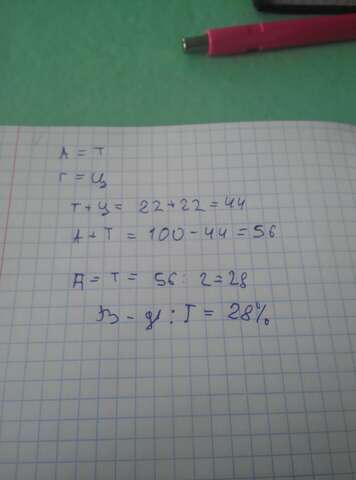 А = Т
Г = Ц
Т + Ц = 22 + 22 = 44
А + Т = 100 - 44 = 56
А = Т = 56 : 2 = 28
В - дь : Т = 28%